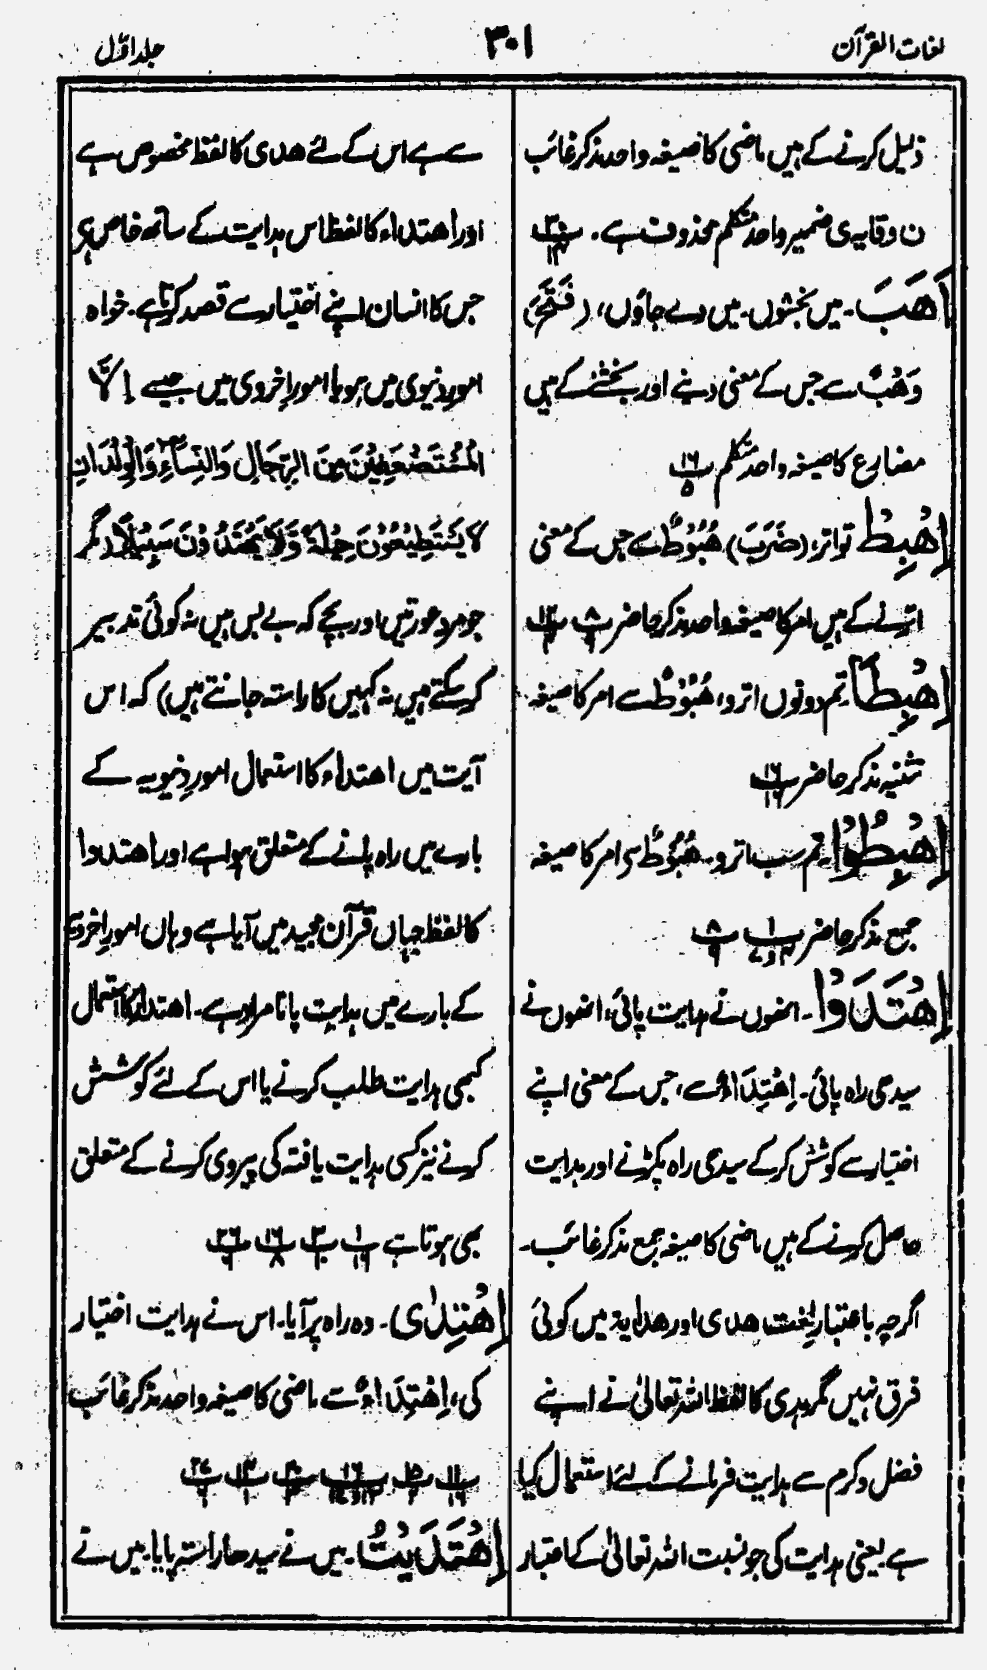 لغات القرآن
۳۰۱
جلد اوّل
ذلیل کرنے کے ہیں ماضی کا صیغہ واحد مذکر غائب
ن وقایہ ی ضمیر واحد متکلم محذوف ہے۔ پ۳۰
اَهَبَ۔ میں بخشوں۔ میں دے جاؤں، (فَتَحَ)
وَهْبٌ سے جس کے معنی دینے اور بخشنے کے ہیں
مضارع کا صیغہ واحد متکلم پ۱۶ ۵
اِهْبِطْ تو اتر، (ضَرَبَ) هُبُوْطٌ سے جس کے معنی
اترنے کے ہیں امر کا صیغہ واحد مذکر حاضر پ۸ ۹ پ۱۲ ۴
اِهْبِطَا تم دونوں اترو، هُبُوْطٌ سے امر کا صیغہ
تثنیہ مذکر حاضر پ۱۶ ۱۶
اِهْبِطُوْا۔ تم سب اترو۔ هُبُوْطٌ سے امر کا صیغہ
جمع مذکر حاضر پ۱ ۴و۷ پ۸ ۹
اِهْتَدَوْا۔ انھوں نے ہدایت پائی، انھوں نے
سیدھی راہ پائی۔ اِهْتِدَاءٌ سے، جس کے معنی اپنے
اختیار سے کوشش کر کے سیدھی راہ پکڑنے اور ہدایت
حاصل کرنے کے ہیں ماضی کا صیغہ جمع مذکر غائب۔
اگرچہ باعتبار لغت هدی اور هدایة میں کوئی
فرق نہیں مگر ہدی کا لفظ اللہ تعالیٰ نے اپنے
فضل و کرم سے ہدایت فرمانے کے لئے استعمال کیا
ہے یعنی ہدایت کی جو نسبت اللہ تعالیٰ کے اعتبار
سے ہے اس کے لئے هدی کا لفظ مخصوص ہے
اور اهتداء کا لفظ اس ہدایت کے ساتھ خاص ہے
جس کا انسان اپنے اختیار سے قصد کرتا ہے۔ خواہ
امور دنیوی میں ہو یا امور اخروی میں جیسے اِلَّا
الْمُسْتَضْعَفِيْنَ مِنَ الرِّجَالِ وَالنِّسَآءِ وَالْوِلْدَانِ
لَا يَسْتَطِيْعُوْنَ حِيْلَةً وَّلَا يَهْتَدُوْنَ سَبِيْلًا (مگر
جو مرد عورتیں اور بچے کہ بے بس ہیں نہ کوئی تدبیر
کر سکتے ہیں نہ کہیں کا راستہ جانتے ہیں) کہ اس
آیت میں اهتداء کا استعمال امور دنیویہ کے
بارے میں راہ پانے کے متعلق ہوا ہے اور اهتدوا
کا لفظ جہاں قرآن مجید میں آیا ہے وہاں امور اخرویہ
کے بارے میں ہدایت پانا مراد ہے۔ اهتداء کا استعمال
کبھی ہدایت طلب کرنے یا اس کے لئے کوشش
کرنے نیز کسی ہدایت یافتہ کی پیروی کرنے کے متعلق
بھی ہوتا ہے پ۱ ۱۶ پ۳ ۱۰ پ۱۶ ۸ پ۲۶ ۶
اِهْتَدٰی۔ وہ راہ پر آیا۔ اس نے ہدایت اختیار
کی، اِهْتِدَاءٌ سے ماضی کا صیغہ واحد مذکر غائب
پ۱۱ ۱۶ پ۱۵ ۲ پ۱۶ پ۲۰ پ۱۳ ۱ پ۲۷ ۶
اِهْتَدَيْتُ۔ میں نے سیدھا راستہ پایا۔ میں نے